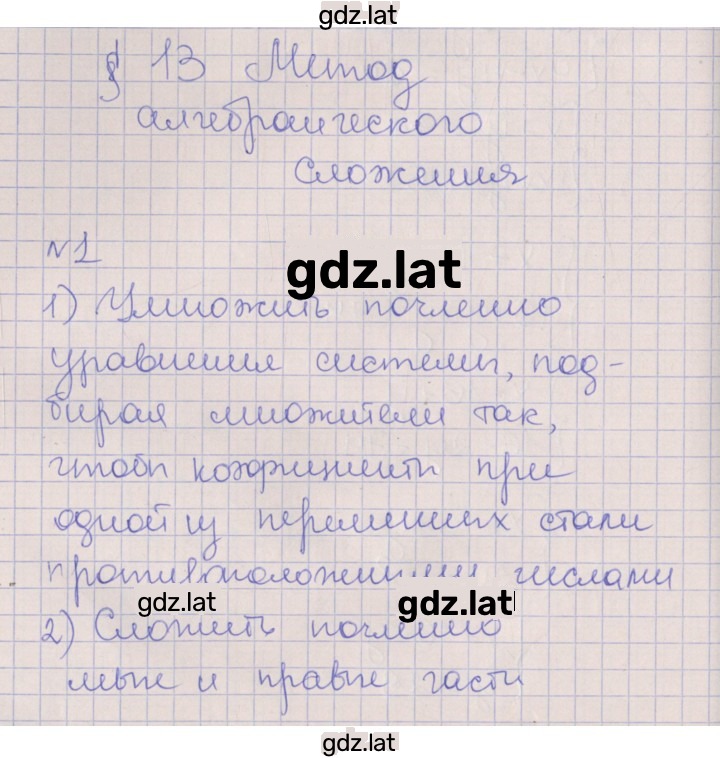 gdz.lat
§ 13 Метод
алгебраического
сложения
№1
gdz.lat
1) Умножить почленно
уравнения системы, под-
бирая множители так,
чтобы коэффициенты при
одной из переменных стали
противоположными числами
gdz.lat
gdz.lat
2) Сложить почленно
левые и правые части
gdz.lat